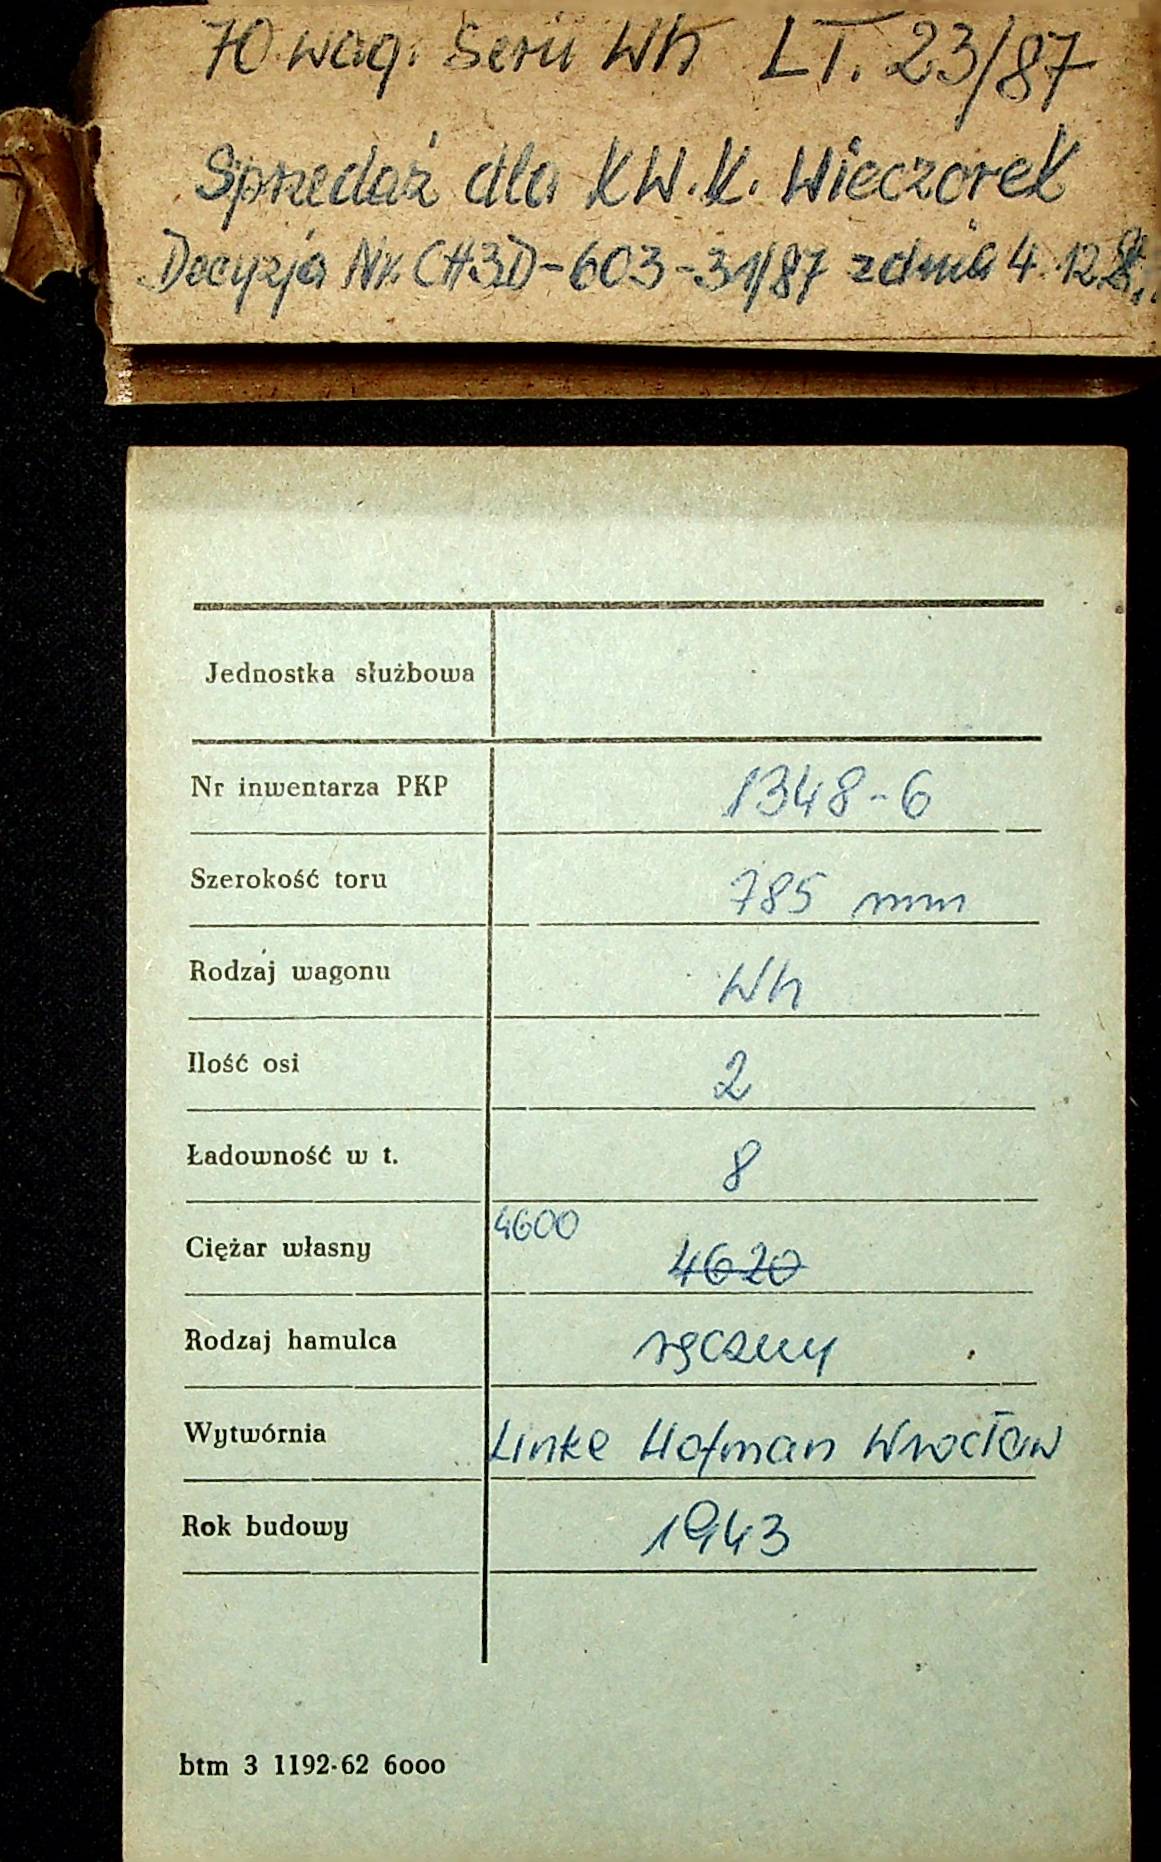 70 wag. Serii Wh LT. 23/87
Sprzedaż dla KW.K. Wieczorek
Decyzja Nr. CH3D-603-31/87 z dnia 4.12.
Jednostka służbowa
Nr inwentarza PKP 1348-6
Szerokość toru 785 mm
Rodzaj wagonu Wh
Ilość osi 2
Ładowność w t. 8
Ciężar własny 4600 4620
Rodzaj hamulca ręczny
Wytwórnia Linke Hofman Wrocław
Rok budowy 1943
btm 3 1192-62 6000